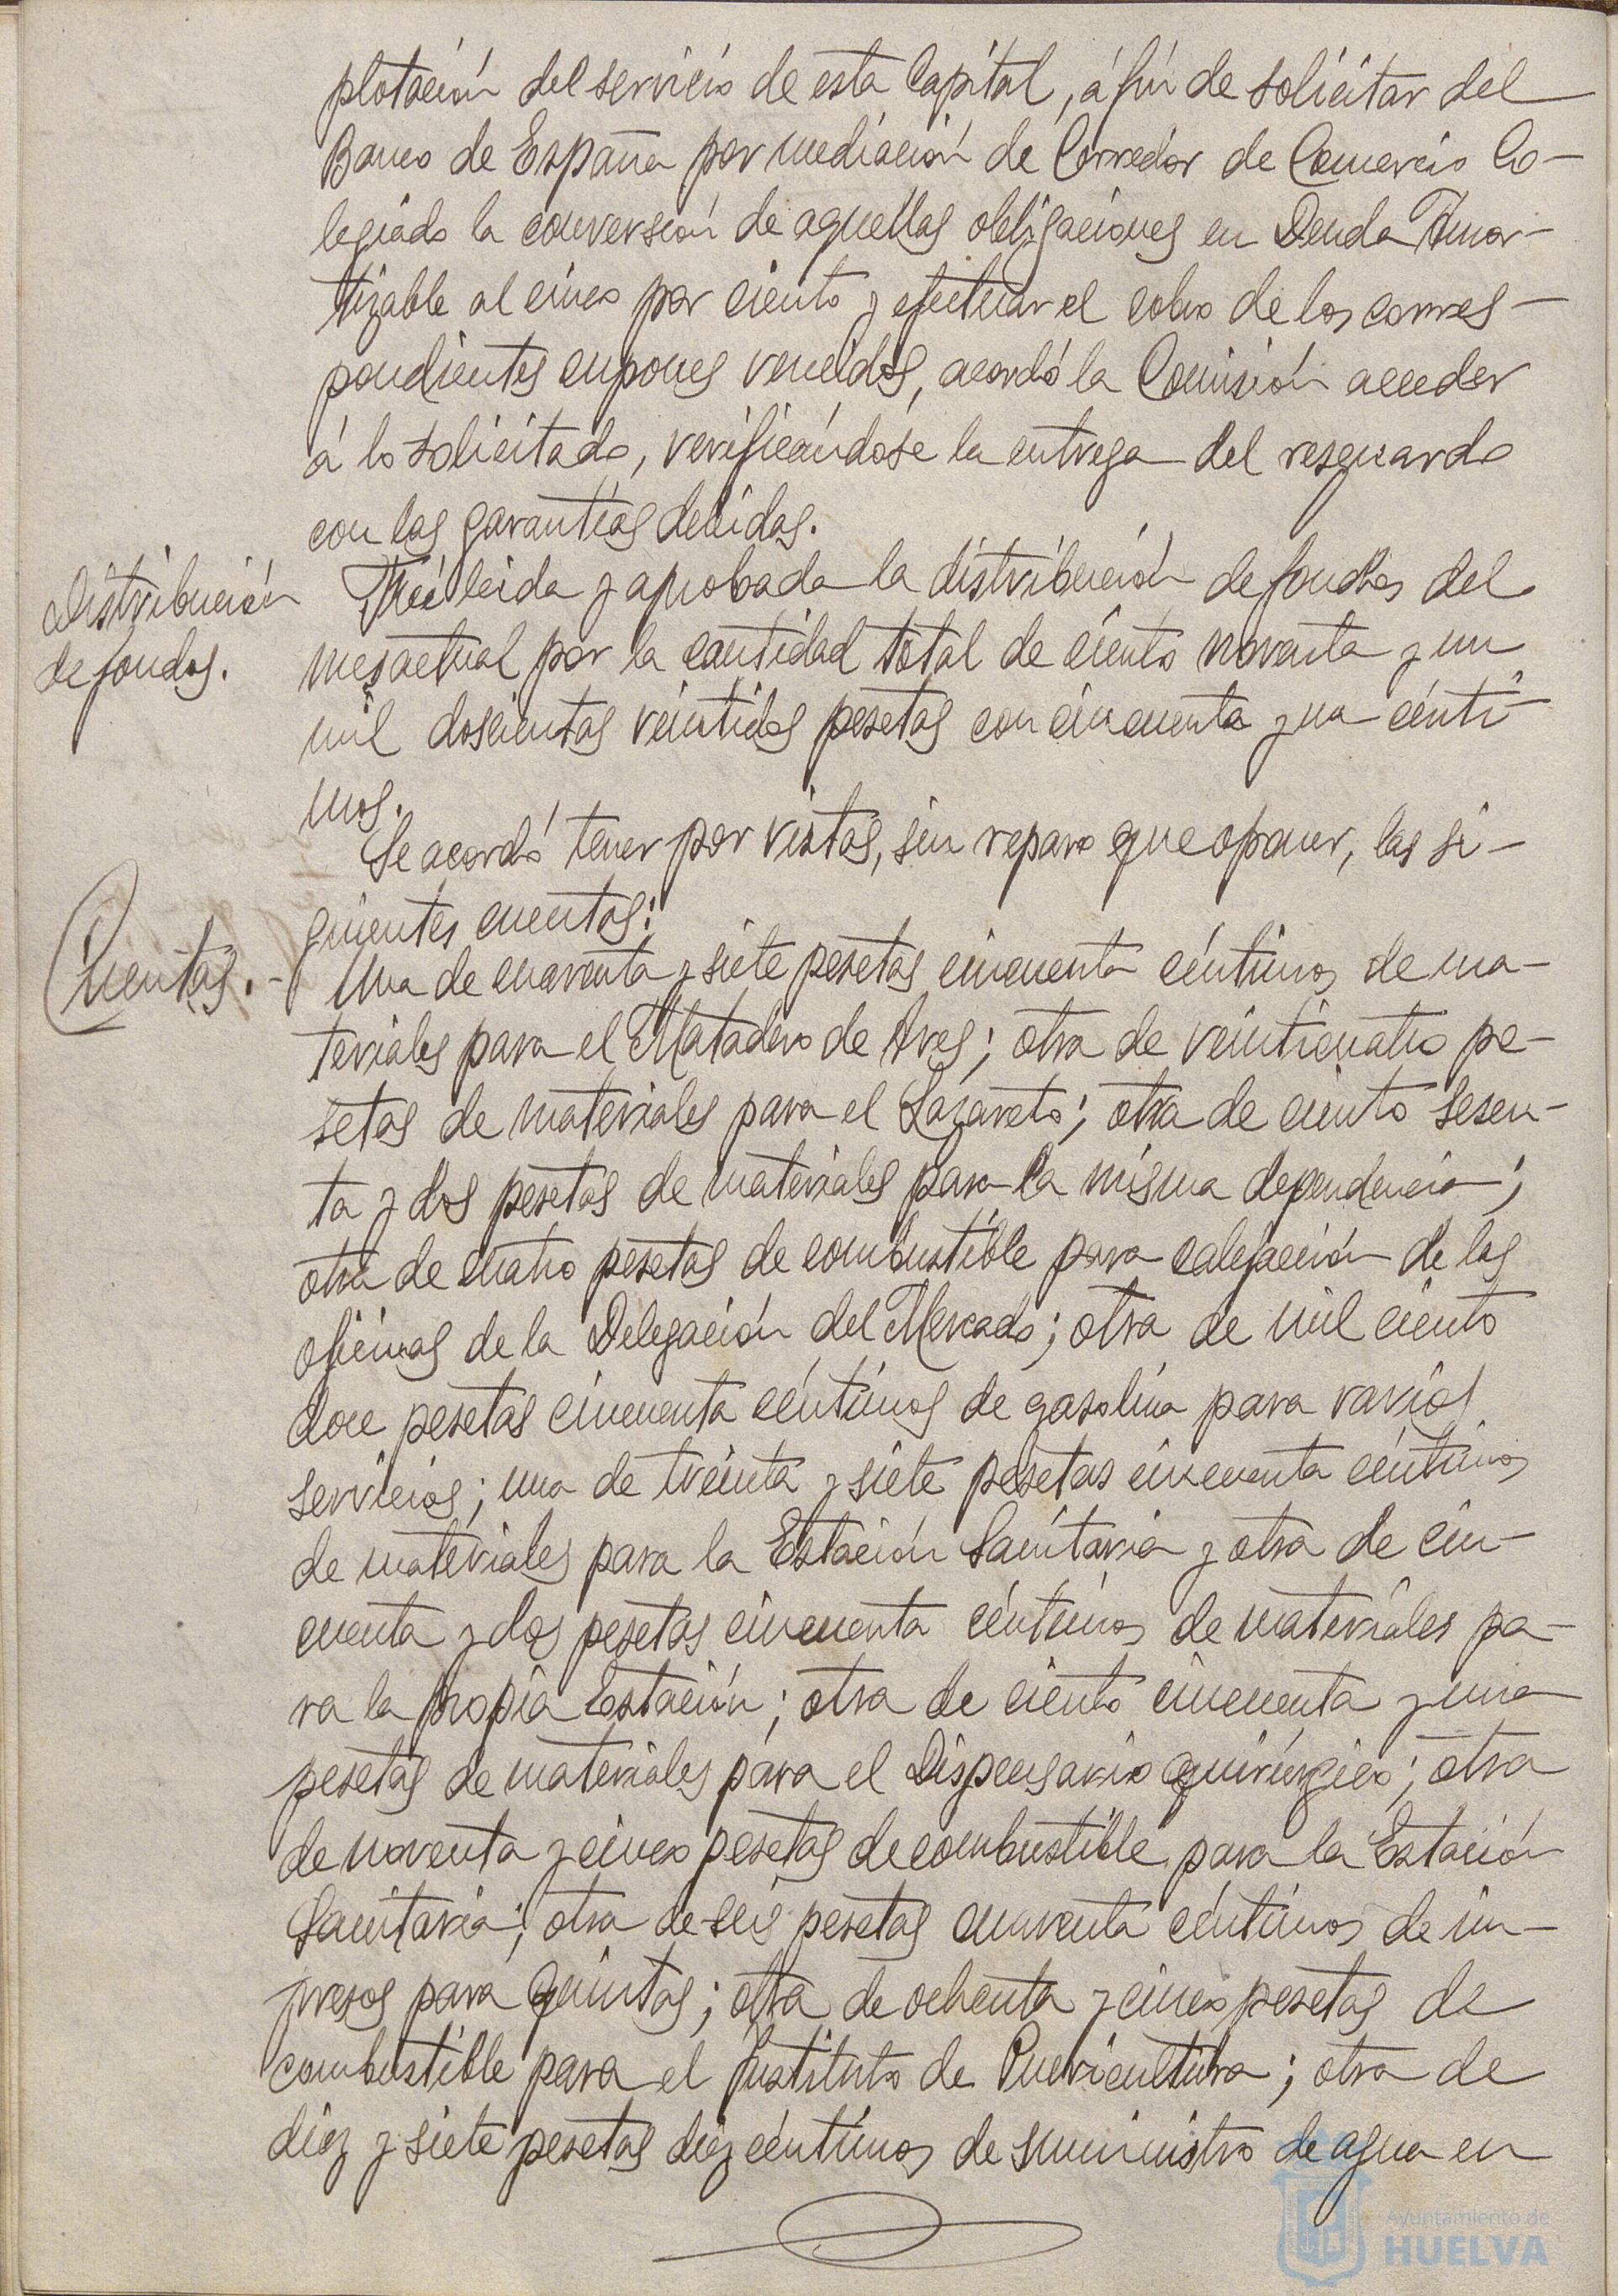 plotación del servicio de esta Capital, á fin de solicitar del
Banco de España por mediación de Corredor de Comercio Co-
legiado la conversión de aquellas obligaciones en Deuda Amor-
tizable al cinco por ciento y efectuar el cobro de los corres-
pondientes cupones vencidos, acordó la Comisión acceder
á lo solicitado, verificándose la entrega del resguardo
con las garantías debidas.
Distribución
de fondos.
Fué leida y aprobada la distribución de fondos del
mes actual por la cantidad total de ciento noventa y un
mil doscientas veintidos pesetas con cincuenta y un cénti-
mos.
Se acordó tener por vistas, sin reparo que oponer, las si-
guientes cuentas:
Cuentas.-
Una de cuarenta y siete pesetas cincuenta céntimos de ma-
teriales para el Matadero de Aves; otra de veinticuatro pe-
setas de materiales para el Lazareto; otra de ciento sesen-
ta y dos pesetas de materiales para la misma dependencia;
otra de cuatro pesetas de combustible para calefacción de las
oficinas de la Delegación del Mercado; otra de mil ciento
doce pesetas cincuenta céntimos de gasolina para varios
servicios; una de treinta y siete pesetas cincuenta céntimos
de materiales para la Estación Sanitaria y otra de cin-
cuenta y dos pesetas cincuenta céntimos de materiales pa-
ra la propia Estación; otra de ciento cincuenta y una
pesetas de materiales para el Dispensario quirúrgico; otra
de noventa y cinco pesetas de combustible para la Estación
Sanitaria; otra de seis pesetas cuarenta céntimos de im-
presos para quintas; otra de ochenta y cinco pesetas de
combustible para el Instituto de Puericultura; otra de
diez y siete pesetas diez céntimos de suministro de agua en
Ayuntamiento de
HUELVA